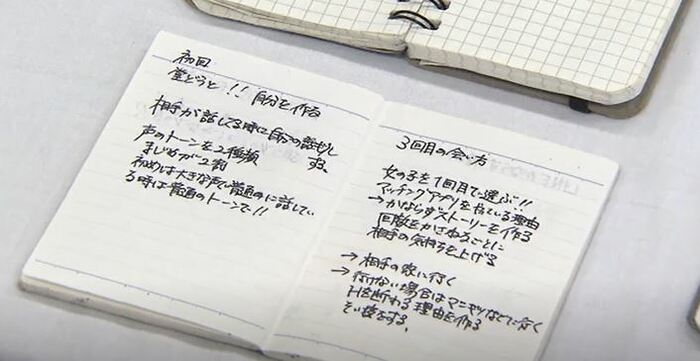 初回
堂どうと!! 自分を作る
相手が話してる時に自分の話も
声のトーンを2種類
まじめが2割
初めは大きな声で普通のに話してい
る時は普通のトーンで!!
3回目の会い方
女の子を1回目で選ぶ!!
マッチングアプリをやている理由
→かならずストーリーを作る
回数をかさねるごとに
相手の気持ちを上げる
→相手の家に行く
→行けない場合は などに行く
Hを断わる理由を作る
をする。